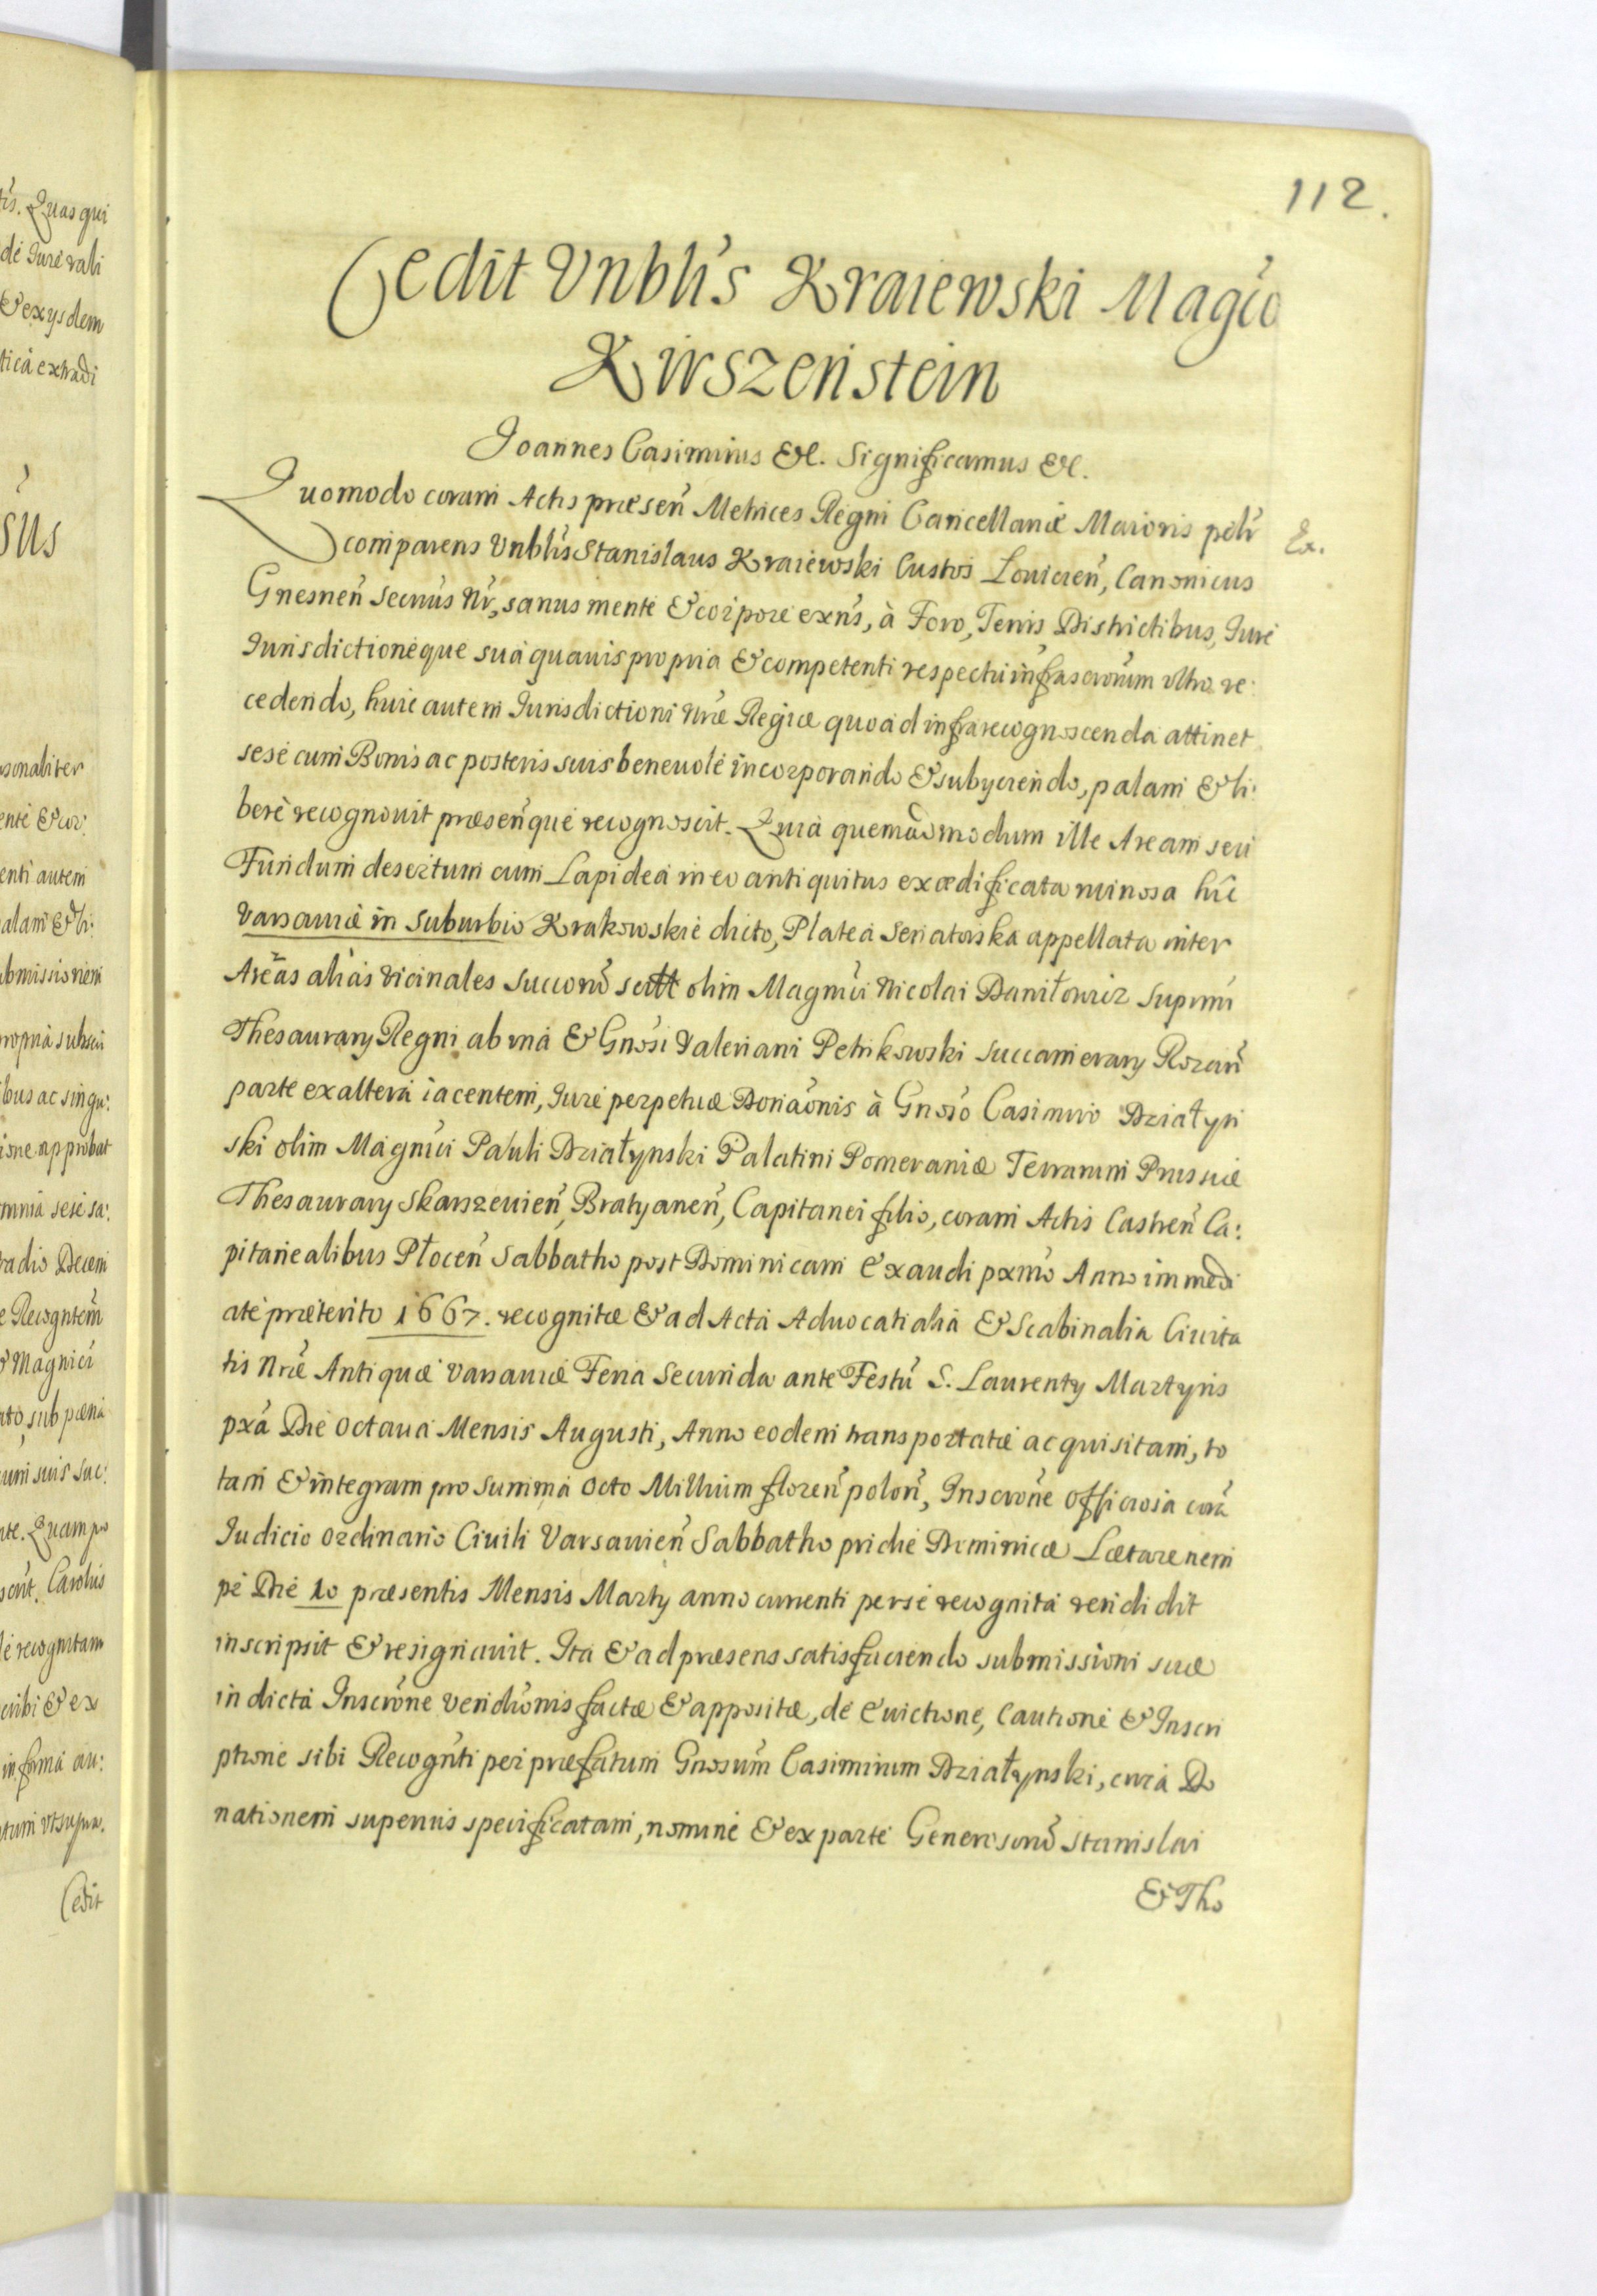 112.
Cedit Vnblis Kraiewski Magco
Kirszenstein
Joannes Casimirus &c. Significamus &c.
Quomodo coram Actis præsen Metrices Regni Cancellariæ Maioris pslr Ex.
comparens Vnblis Stanislaus Kraiewski Custos Louicien, Canonicus
Gnesnen Secrius Nr, sanus mente & corpore exns, à Foro, Terris Districtibus, Jure
Jurisdictioneque sua quauis propria & competenti respectu infrascrorum vltro re:
cedendo, huic autem Jurisdictioni Nræ Regiæ quoad infra recognoscenda attinet
sese cum Bonis ac posteris suis beneuole incorporando & subyciendo, palam & li:
bere recognouit præsenque recognoscit. Quia quemadmodum ille Aream seu
Fundum desertum cum Lapidea in eo antiquitus exædificata ruinosa hic
Varsauiæ in Suburbio Krakowskie dicto, Platea Senatorska appellata inter
Areas alias vicinales Succorum olim Magnci Nicolai Daniłowicz Supremi
Thesaurary Regni ab vna & Gnosi Valeriani Petrikowski Succamerary Rozan
parte ex altera iacentem, Jure perpetuæ Donaonis à Gnoso Casimiro Działyn
ski olim Magnci Pauli Działynski Palatini Pomeraniæ Terrarum Prussiæ
Thesaurary Skarszeuien, Bratyanen, Capitanei filio, coram Actis Castren Ca:
pitanealibus Płocen Sabbatho post Dominicam Exaudi pxmo Anno immedi
ate præterito 1667. recognitæ & ad Acta Aduocatialia & Scabinalia Ciuita
tis Nræ Antiquæ Varsauiæ Feria Secunda ante Festu S. Laurenty Martyris
pxa Die Octaua Mensis Augusti, Anno eodem transportatæ acquisitam, to
tam & integram pro Summa Octo Millium floren polon, Inscrone officiosa cora
Judicio Ordinario Ciuili Varsauien Sabbatho pridie Dominicæ Lætare nem
pe Die 10 præsentis Mensis Marty anno currenti per se recognita vendidit
inscripsit & resignauit. Ita & ad præsens satisfaciendo submissioni suæ
in dicta Inscrone Venditionis factæ & appositæ, de Euictione, Cautione & Inscri
ptione sibi Recognti per præfatum Gnosum Casimirum Działynski, circa Do
nationem superius specificatam, nomine & ex parte Generosoru Stanislai
& Tho